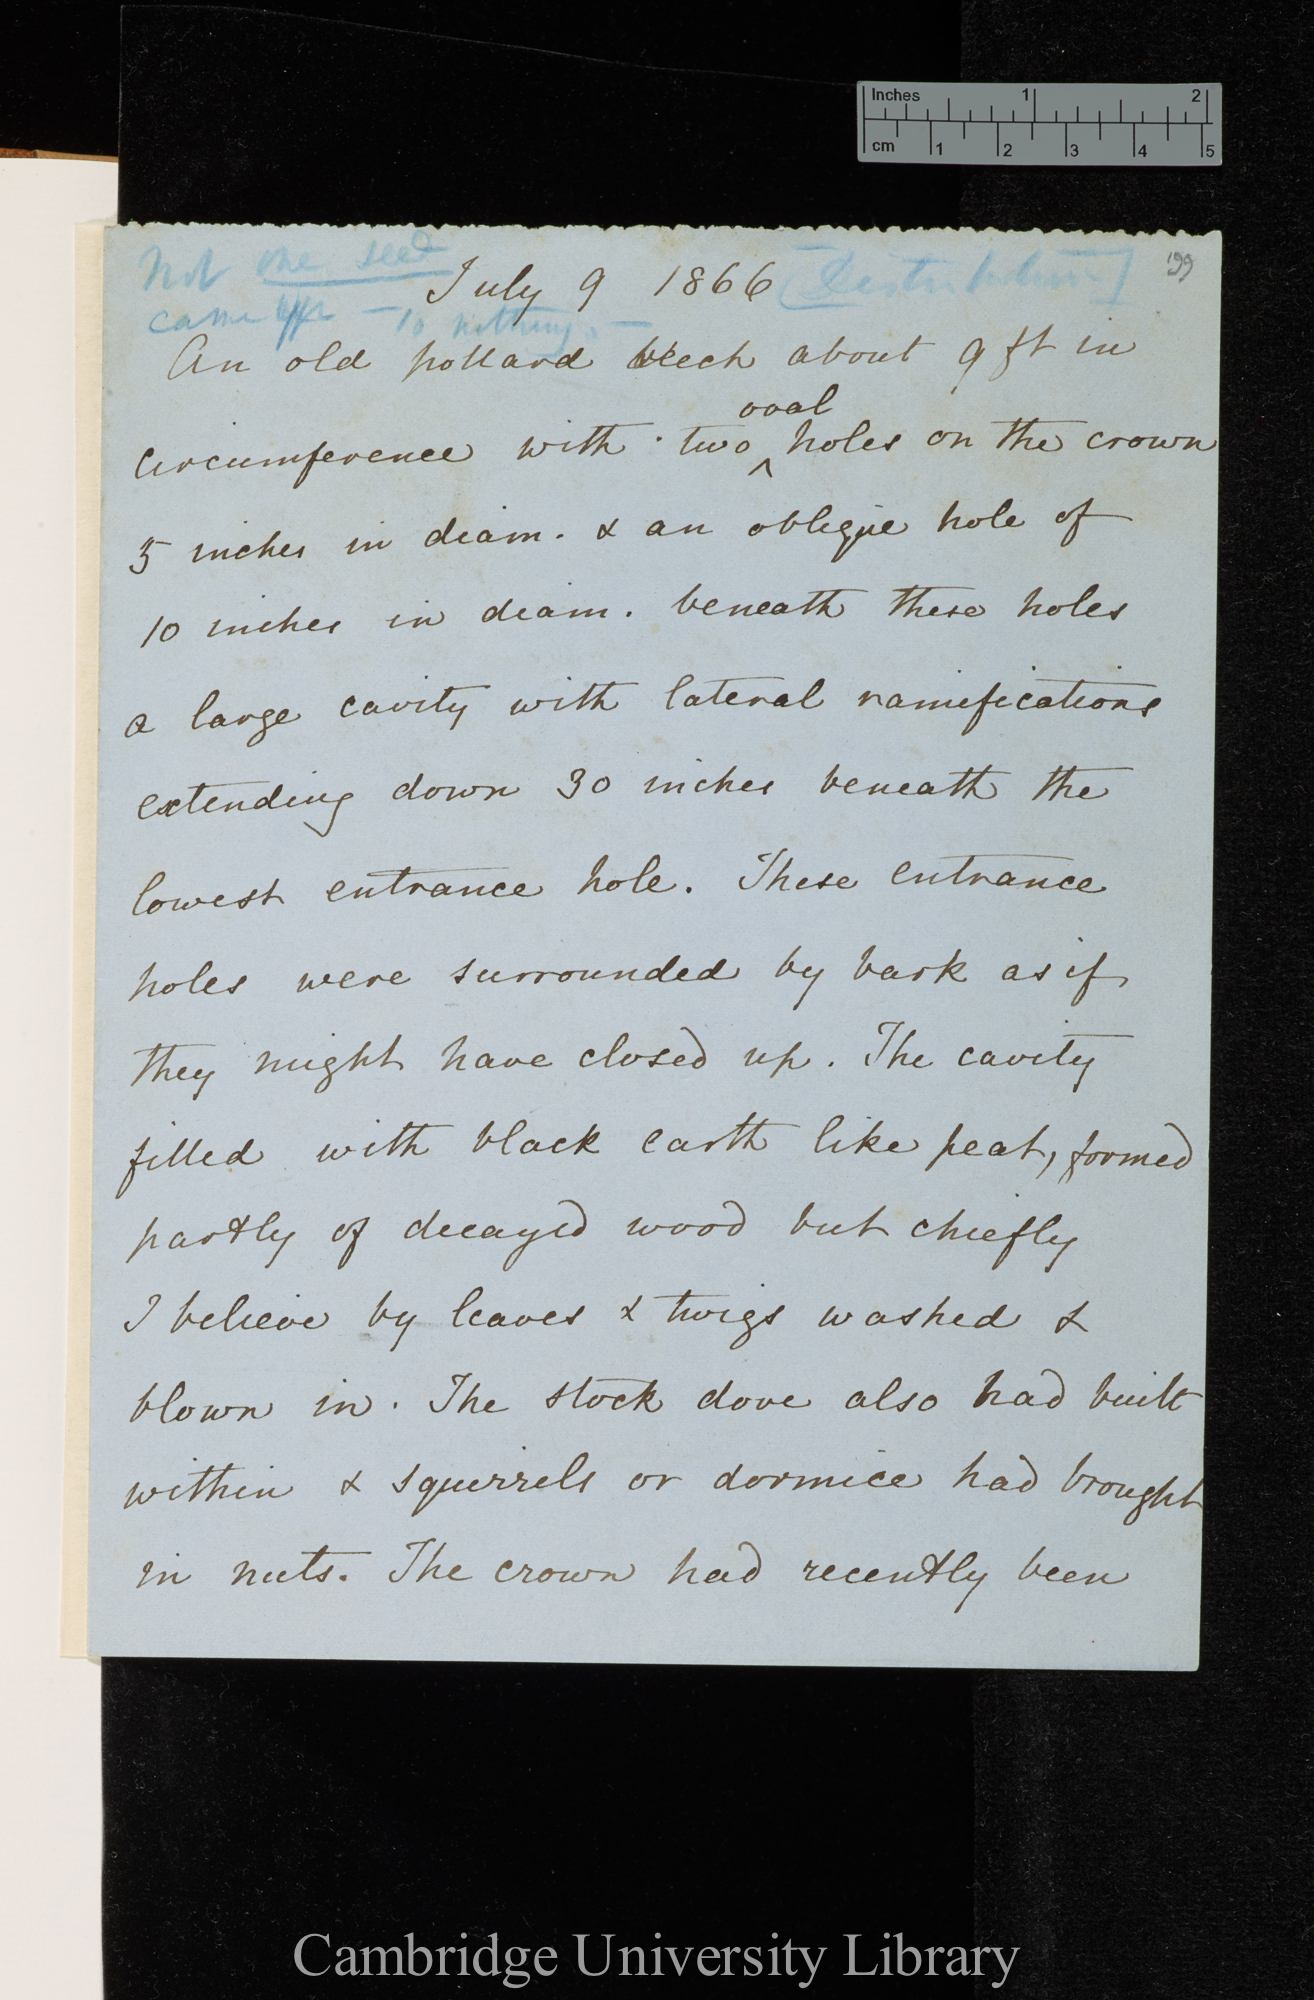 Inches 1 2
cm 1 2 3 4 5
199
not one seed
[Distribution]
came up — to nothing. —
July 9 1866
An old pollard beech about 9 ft in
oval
circumference with two ^ holes on the crown
5 inches in diam. & an oblique hole of
10 inches in diam. beneath these holes
a large cavity with lateral ramifications
extending down 30 inches beneath the
lowest entrance hole. These entrance
holes were surrounded by bark as if
they might have closed up. The cavity
filled with black earth like peat, formed
partly of decayed wood but chiefly
I believe by leaves & twigs washed &
blown in. The stock dove also had built
within & squirrels or dormice had brought
in nuts. The crown had recently been
Cambridge University Library